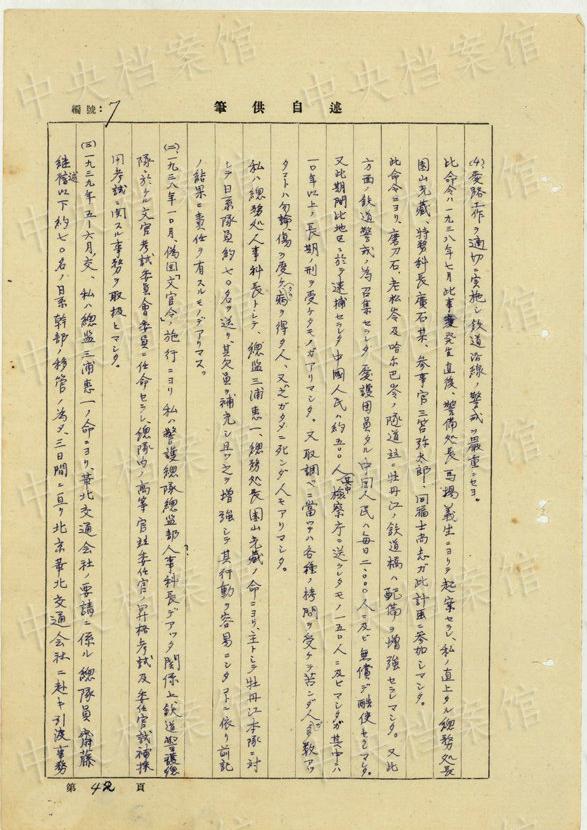 中央档案馆
述自供筆
編號：7
(4) 愛路工作ヲ適切ニ実施シ鉄道沿線ノ警戒ヲ厳重ニセヨ。
此命令ハ一九三八年七月此事変発生直後、警備処長馬場義生ニヨリテ起案セラレ、私ノ直上タル総務処長
園山光蔵、特務科長廣石某、参事官三笘弥太郎、同福士尚志ガ此計画ニ参加シマシタ。
此命令ニヨリ、磨刀石、老松岺及哈尓巴岺ノ隧道並ニ牡丹江ノ鉄道橋ハ配備ヲ増強セラレマシタ。又此
方面ノ鉄道警戒ノ為召集セラレタ愛護団員タル中国人民ハ毎日二、〇〇〇人ニ及ビ無償デ酷使セラレマシタ。
又此期間此地区ニ於テ逮捕セラレタ中國人民ハ約五〇〇人、其中検察庁ニ送ラレタモノ一五〇人ニ及ビマシタガ其中ニハ
一〇年以上ノ長期ノ刑ヲ受ケタモノガアリマシタ。又取調ベニ當ッテハ各種ノ拷問ヲ受ケテ苦シンダ人ガ多数アッ
タコトハ勿論、傷ヲ受ケ、病ヲ得タ人、又之ガタメニ死ンダ人モアリマシタ。
私ハ總務処人事科長トシテ、總監三浦惠一、總務処長園山光蔵ノ命ニヨリ、主トシテ牡丹江本隊ニ対
シテ日系隊員約七〇名ヲ送リ、其欠員ヲ補充シ且ツ之ヲ増強シテ其行動ヲ容易ニシタコトニ依リ前記
ノ結果ニ責任ヲ有スルモノデアリマス。
(二) 一九三八年一〇月、偽国「文官令」ノ施行ニヨリ私ハ警護總隊總監部人事科長デアッタ関係上、鉄道警護總
隊ニ於ケル文官考試委員會委員ニ任命セラレ、總隊内ノ高等官並委任官ノ昇格考試及委任官試補採
用考試ニ関スル事務ヲ取扱ヒマシタ。
(三) 一九三九年五ー六月ノ交、私ハ總監三浦惠一ノ命ニヨリ華北交通会社ノ要請ニ係ル總隊員齋藤
継述以下約七〇名ノ日系幹部ノ移管ノ為メ、三日間ニ亘リ北京華北交通会社ニ赴キ引渡事務
第 42 頁